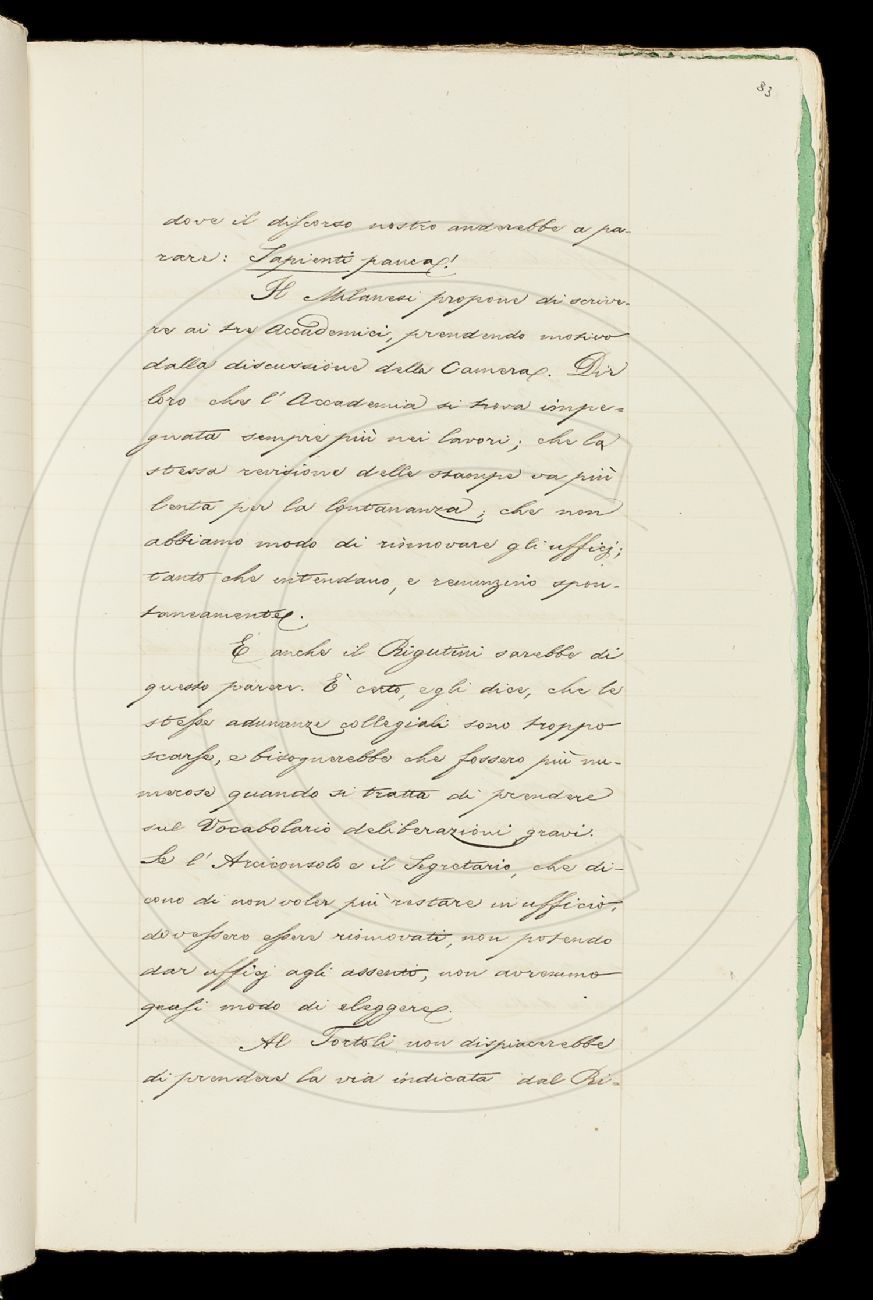 83
dove il discorso nostro andrebbe a pa-
rare: Sapienti pauca!
Il Milanesi propone di scrive-
re ai tre Accademici, prendendo motivo
dalla discussione della Camera. Dir
loro che l'Accademia si trova impe-
gnata sempre più nei lavori; che la
stessa revisione delle stampe va più
lenta per la lontananza; che non
abbiamo modo di rinnovare gli ufficj;
tanto che intendano, e renunzino spon-
taneamente.
E anche il Rigutini sarebbe di
questo parere. È certo, egli dice, che le
stesse adunanze collegiali sono troppo
scarse, e bisognerebbe che fossero più nu-
merose quando si tratta di prendere
sul Vocabolario deliberazioni gravi.
Se l'Arciconsolo e il Segretario, che di-
cono di non voler più restare inufficio,
dovessero essere rinnovati, non potendo
dar ufficj agli assenti, non avremmo
quasi modo di eleggere.
Al Tortoli non dispiacerebbe
di prendere la via indicata dal Ri-